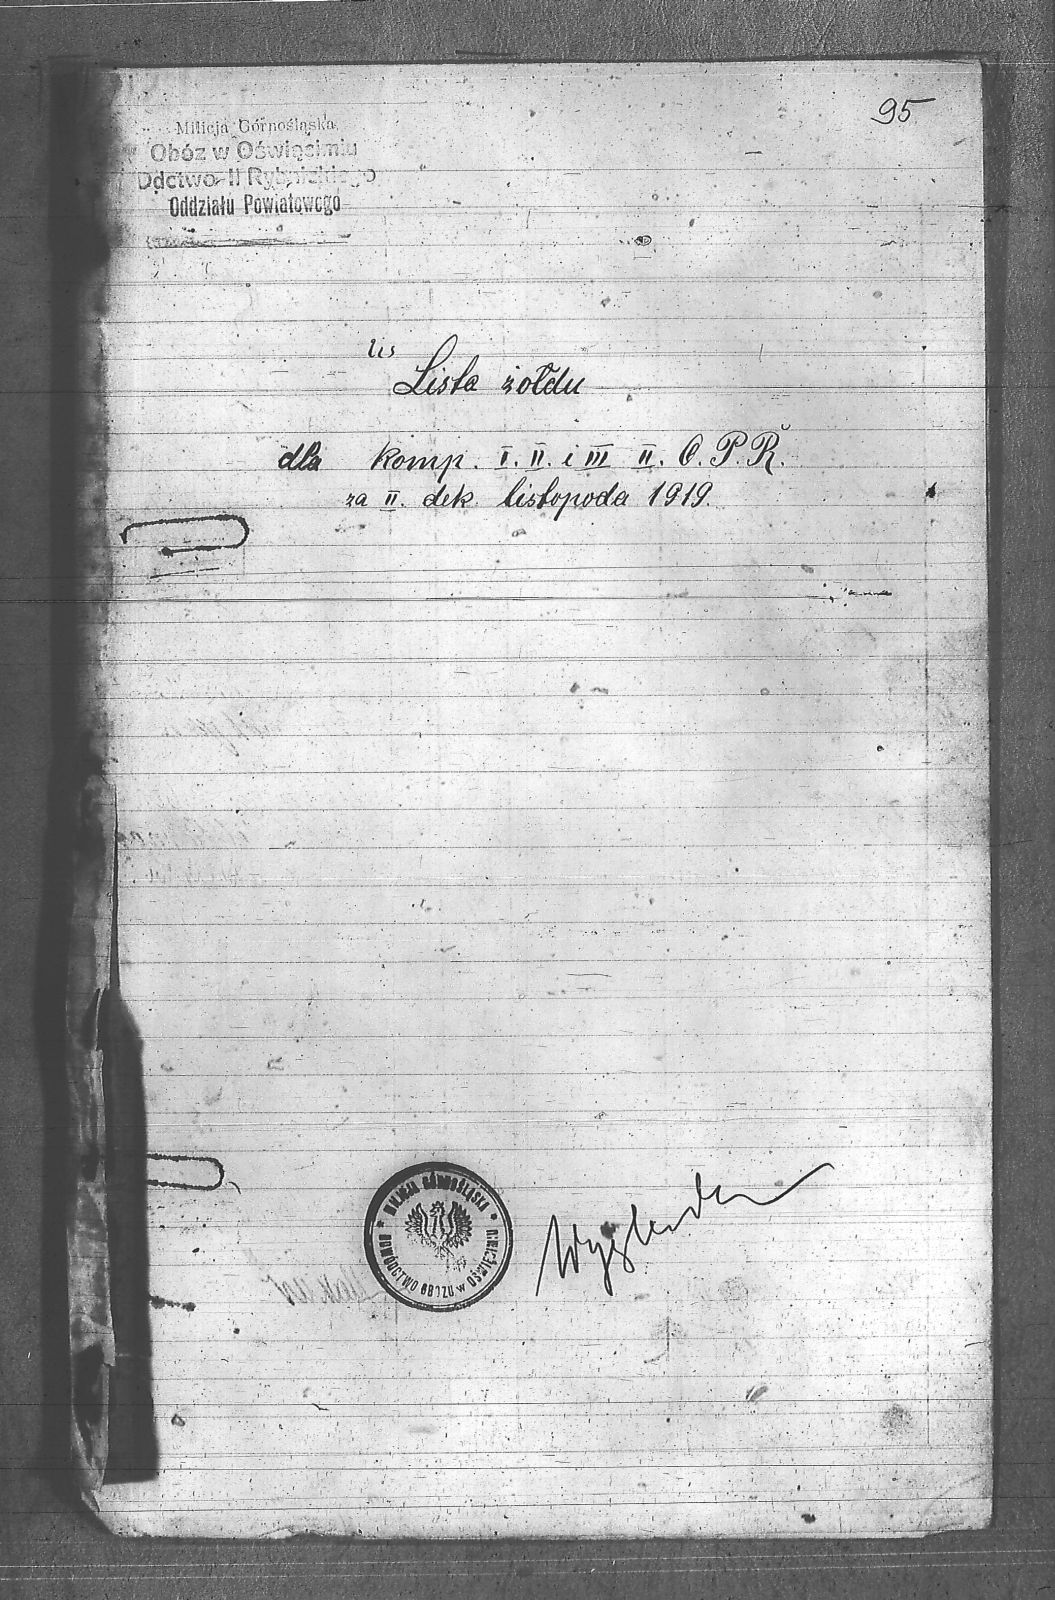 95
Milicja Górnośląska
Obóz w Oświęcimiu
Ddctwo II Rybnickiego
Oddziału Powiatowego
Lis
Lista żołdu
dla komp. I. II. i III II. O. P. R.
za II. dek. listopoda 1919.
* MILICJA GÓRNOŚLĄSKA *
DOWÓDCTWO OBOZU w OŚWIĘCIMIU